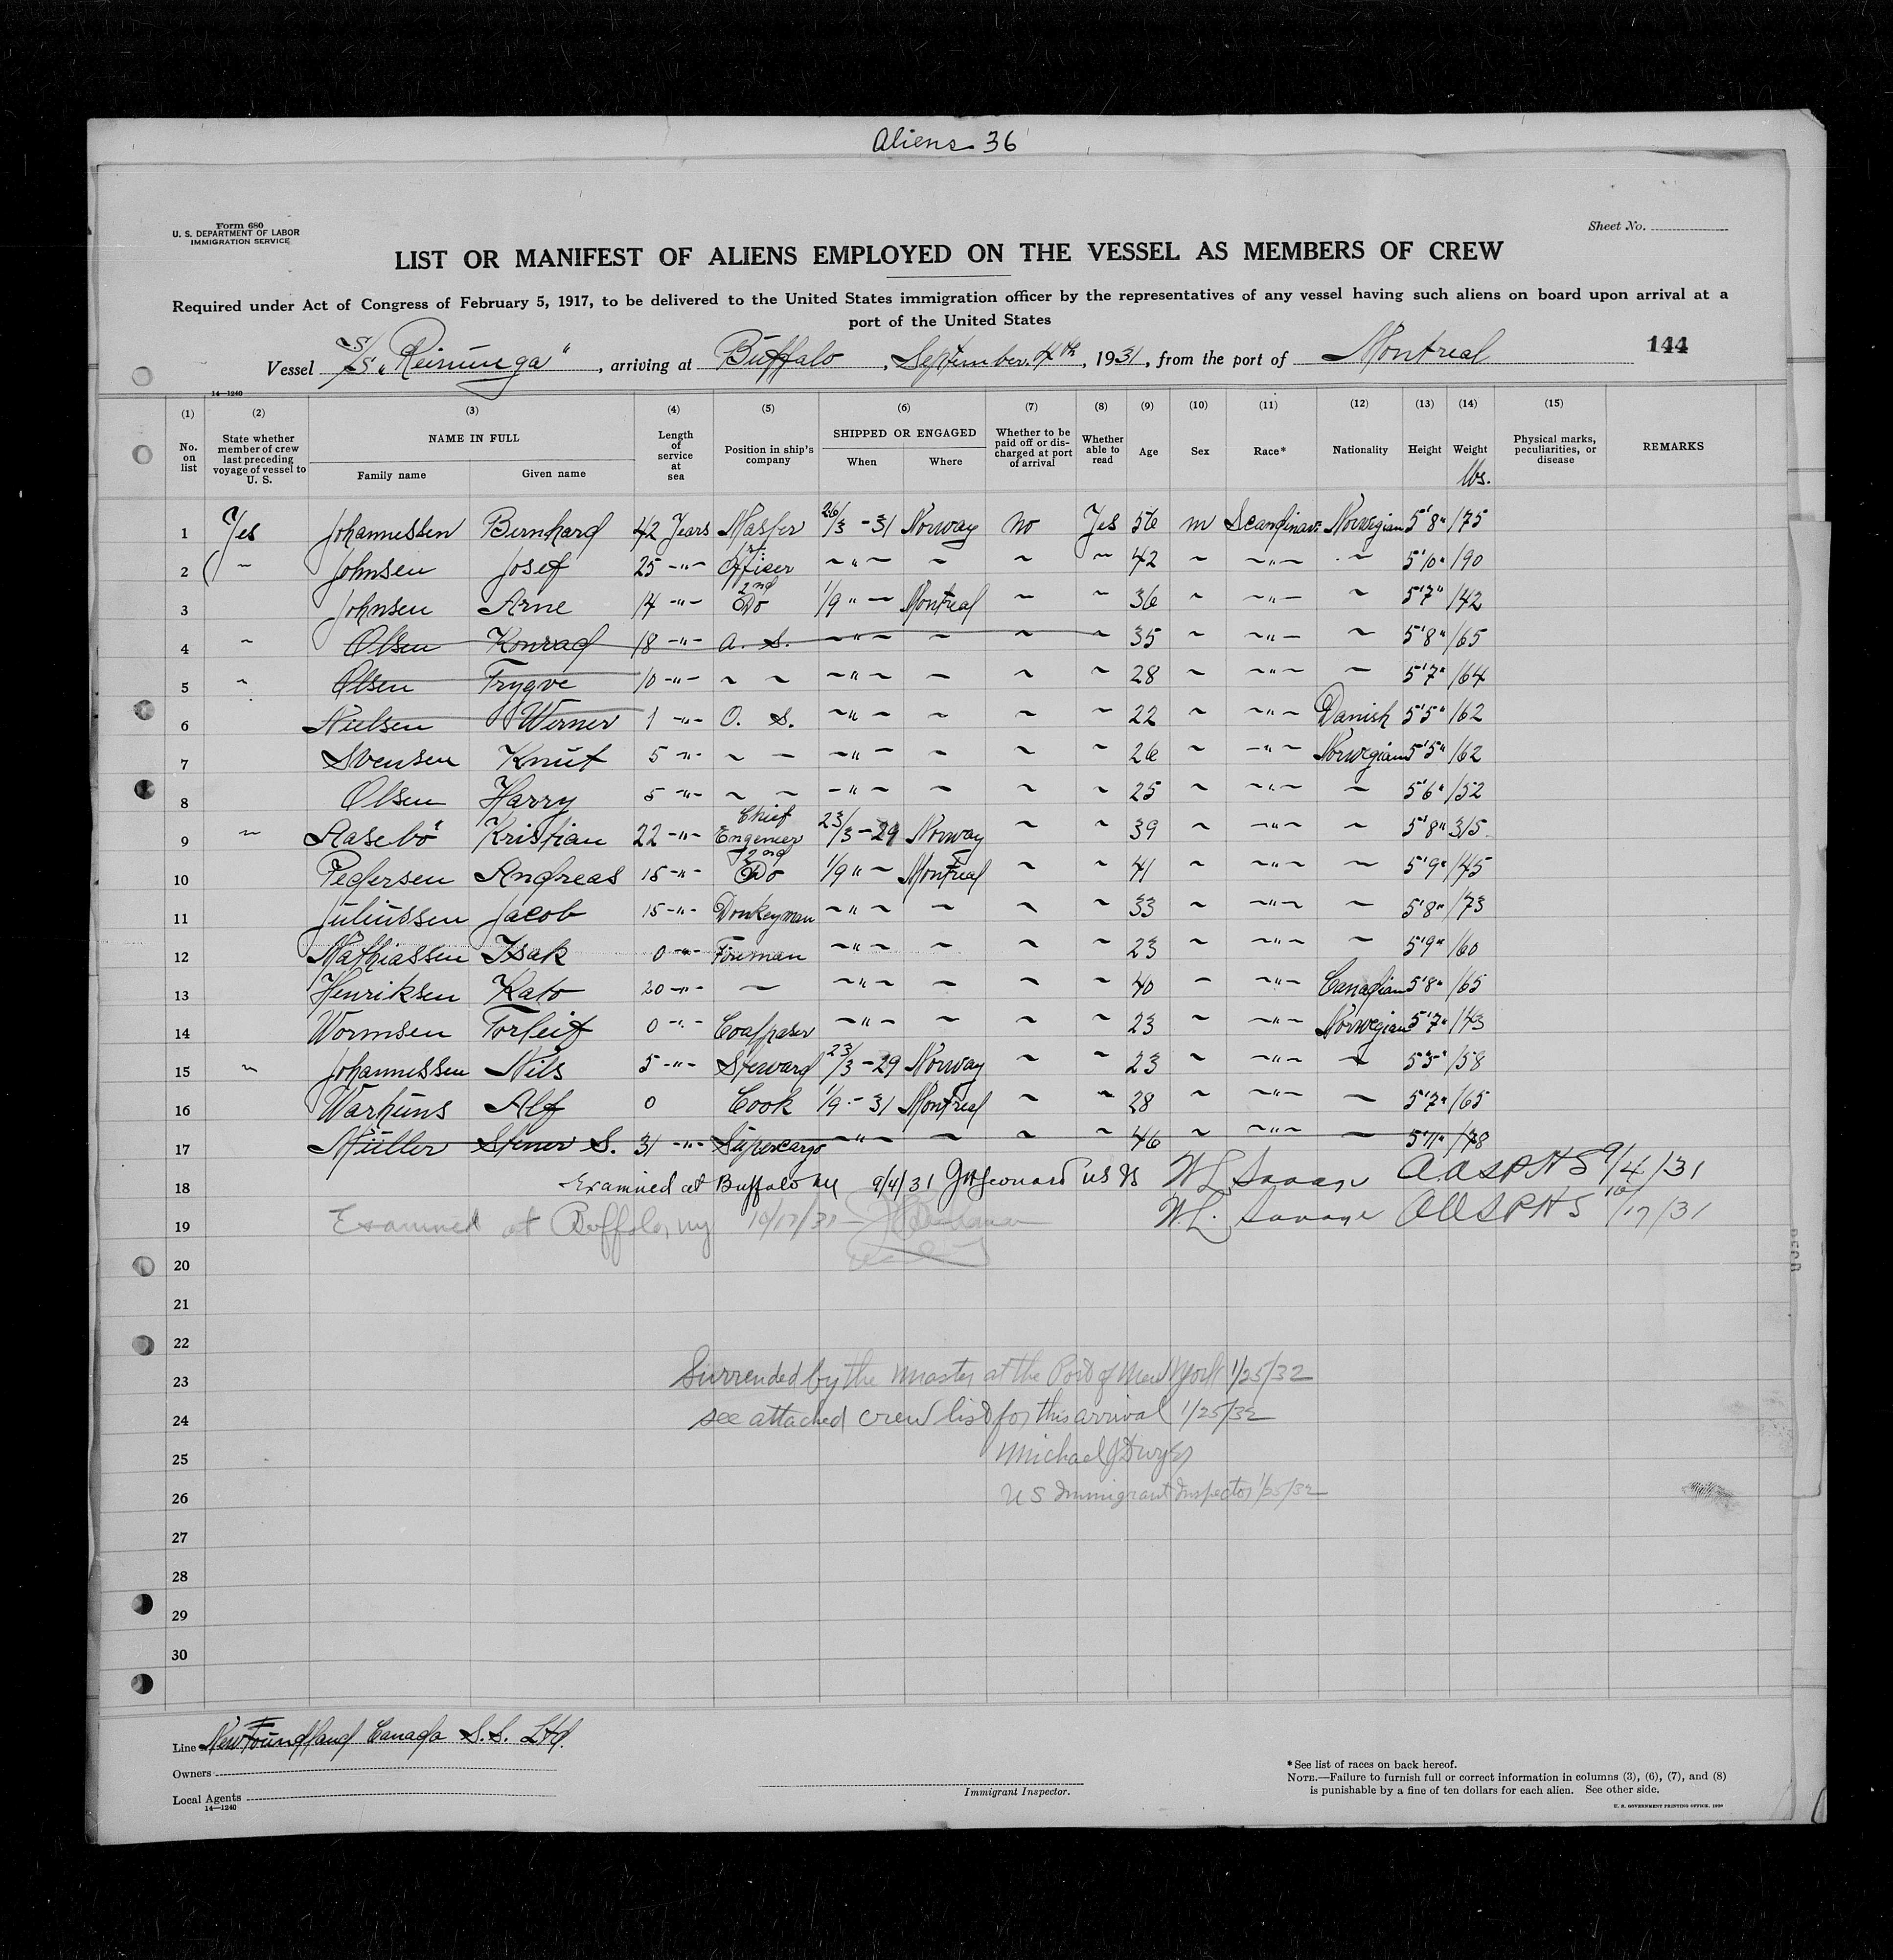 Aliens 36
Form 680
U. S. DEPARTMENT OF LABOR
IMMIGRATION SERVICE
Sheet No.
LIST OR MANIFEST OF ALIENS EMPLOYED ON THE VESSEL AS MEMBERS OF CREW
Required under Act of Congress of February 5, 1917, to be delivered to the United States immigration officer by the representatives of any vessel having such aliens on board upon arrival at a
port of the United States
Vessel S/S "Reinunga", arriving at Buffalo, September 4th, 1931, from the port of Montreal 144
14—1240
(1) (2) (3) (4) (5) (6) (7) (8) (9) (10) (11) (12) (13) (14) (15)
No. on list State whether member of crew last preceding voyage of vessel to U. S. NAME IN FULL Family name Given name Length of service at sea Position in ship's company SHIPPED OR ENGAGED When Where Whether to be paid off or discharged at port of arrival Whether able to read Age Sex Race* Nationality Height Weight lbs. Physical marks, peculiarities, or disease REMARKS
1 Yes Johannessen Bernhard 42 Years Master 26/3 - 31 Norway No Yes 56 m Scandinavi Norwegian 5'8" 175
2 ~ Johnsen Josef 25 -"- 1st Officer ~"~ ~ ~ ~ 42 ~ ~"~ ~ 5'10" 190
3 Johnsen Arne 14 -"- 2nd Do 1/9 " ~ Montreal ~ ~ 36 ~ ~"~ ~ 5'7" 142
4 ~ Olsen Konrad 18 -"- A. S. ~"~ ~ ~ ~ 35 ~ ~"~ ~ 5'8" 165
5 ~ Olsen Trygve 10 -"- ~ ~ ~"~ ~ ~ ~ 28 ~ ~"~ ~ 5'7" 164
6 Nielsen Werner 1 -"- O. S. ~"~ ~ ~ ~ 22 ~ ~"~ Danish 5'5" 162
7 Svensen Knut 5 -"- ~ ~ ~"~ ~ ~ ~ 26 ~ ~"~ Norwegian 5'5" 162
8 Olsen Harry 5 -"- ~ ~ ~"~ ~ ~ ~ 25 ~ ~"~ ~ 5'6" 152
9 ~ Aasebö Kristian 22 -"- Chief Engenier 23/3 - 29 Norway ~ ~ 39 ~ ~"~ ~ 5'8" 315
10 Pedersen Andreas 15 -"- 2nd Do 1/9 " ~ Montreal ~ ~ 41 ~ ~"~ ~ 5'9" 145
11 Juliussen Jacob 15 -"- Donkeyman ~"~ ~ ~ ~ 33 ~ ~"~ ~ 5'8" 173
12 Mathiassen Isak 0 -"- Fireman ~"~ ~ ~ ~ 23 ~ ~"~ ~ 5'9" 160
13 Henriksen Kato 20 -"- ~ ~"~ ~ ~ ~ 40 ~ ~"~ Canadian 5'8" 165
14 Wormsen Torleif 0 -"- Coalpaser ~"~ ~ ~ ~ 23 ~ ~"~ Norwegian 5'7" 143
15 ~ Johannessen Nils 5 -"- Steward 23/3 - 29 Norway ~ ~ 23 ~ ~"~ ~ 5'5" 158
16 Warhuns Alf 0 Cook 1/9 - 31 Montreal ~ ~ 28 ~ ~"~ ~ 5'7" 165
17 Müller Stener S. 31 -"- Supercargo ~"~ ~ ~ ~ 46 ~ ~"~ ~ 5'11" 178
18 Examined at Buffalo NY 9/4/31 J H Leonard US IS W L Savage A A S P H S 9/4/31
19 Examined at Buffalo, NY 10/17/31 W. L. Savage AASPHS 10/17/31
20
21
22
23 Surrended by the Master at the Port of New York 1/25/32
24 see attached crew list for this arrival 1/25/32
25 Michael J Dwyer
26 US Immigrant Inspector 1/25/32
27
28
29
30
Line New Foundland Canada S.S. Ltd.
Owners
Local Agents
14—1240
Immigrant Inspector.
* See list of races on back hereof.
NOTE.—Failure to furnish full or correct information in columns (3), (6), (7), and (8)
is punishable by a fine of ten dollars for each alien. See other side.